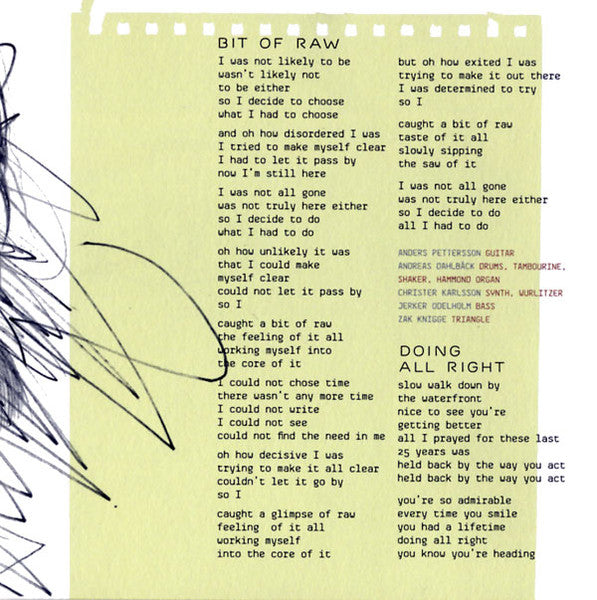 BIT OF RAW
I was not likely to be
wasn't likely not
to be either
so I decide to choose
what I had to choose
and oh how disordered I was
I tried to make myself clear
I had to let it pass by
now I'm still here
I was not all gone
was not truly here either
so I decide to do
what I had to do
oh how unlikely it was
that I could make
myself clear
could not let it pass by
so I
caught a bit of raw
the feeling of it all
working myself into
the core of it
I could not chose time
there wasn't any more time
I could not write
I could not see
could not find the need in me
oh how decisive I was
trying to make it all clear
couldn't let it go by
so I
caught a glimpse of raw
feeling of it all
working myself
into the core of it
but oh how exited I was
trying to make it out there
I was determined to try
so I
caught a bit of raw
taste of it all
slowly sipping
the saw of it
I was not all gone
was not truly here either
so I decide to do
all I had to do
ANDERS PETTERSSON GUITAR
ANDREAS DAHLBÄCK DRUMS, TAMBOURINE,
SHAKER, HAMMOND ORGAN
CHRISTER KARLSSON SYNTH, WURLITZER
JERKER ODELHOLM BASS
ZAK KNIGGE TRIANGLE
DOING
ALL RIGHT
slow walk down by
the waterfront
nice to see you're
getting better
all I prayed for these last
25 years was
held back by the way you act
held back by the way you act
you're so admirable
every time you smile
you had a lifetime
doing all right
you know you're heading